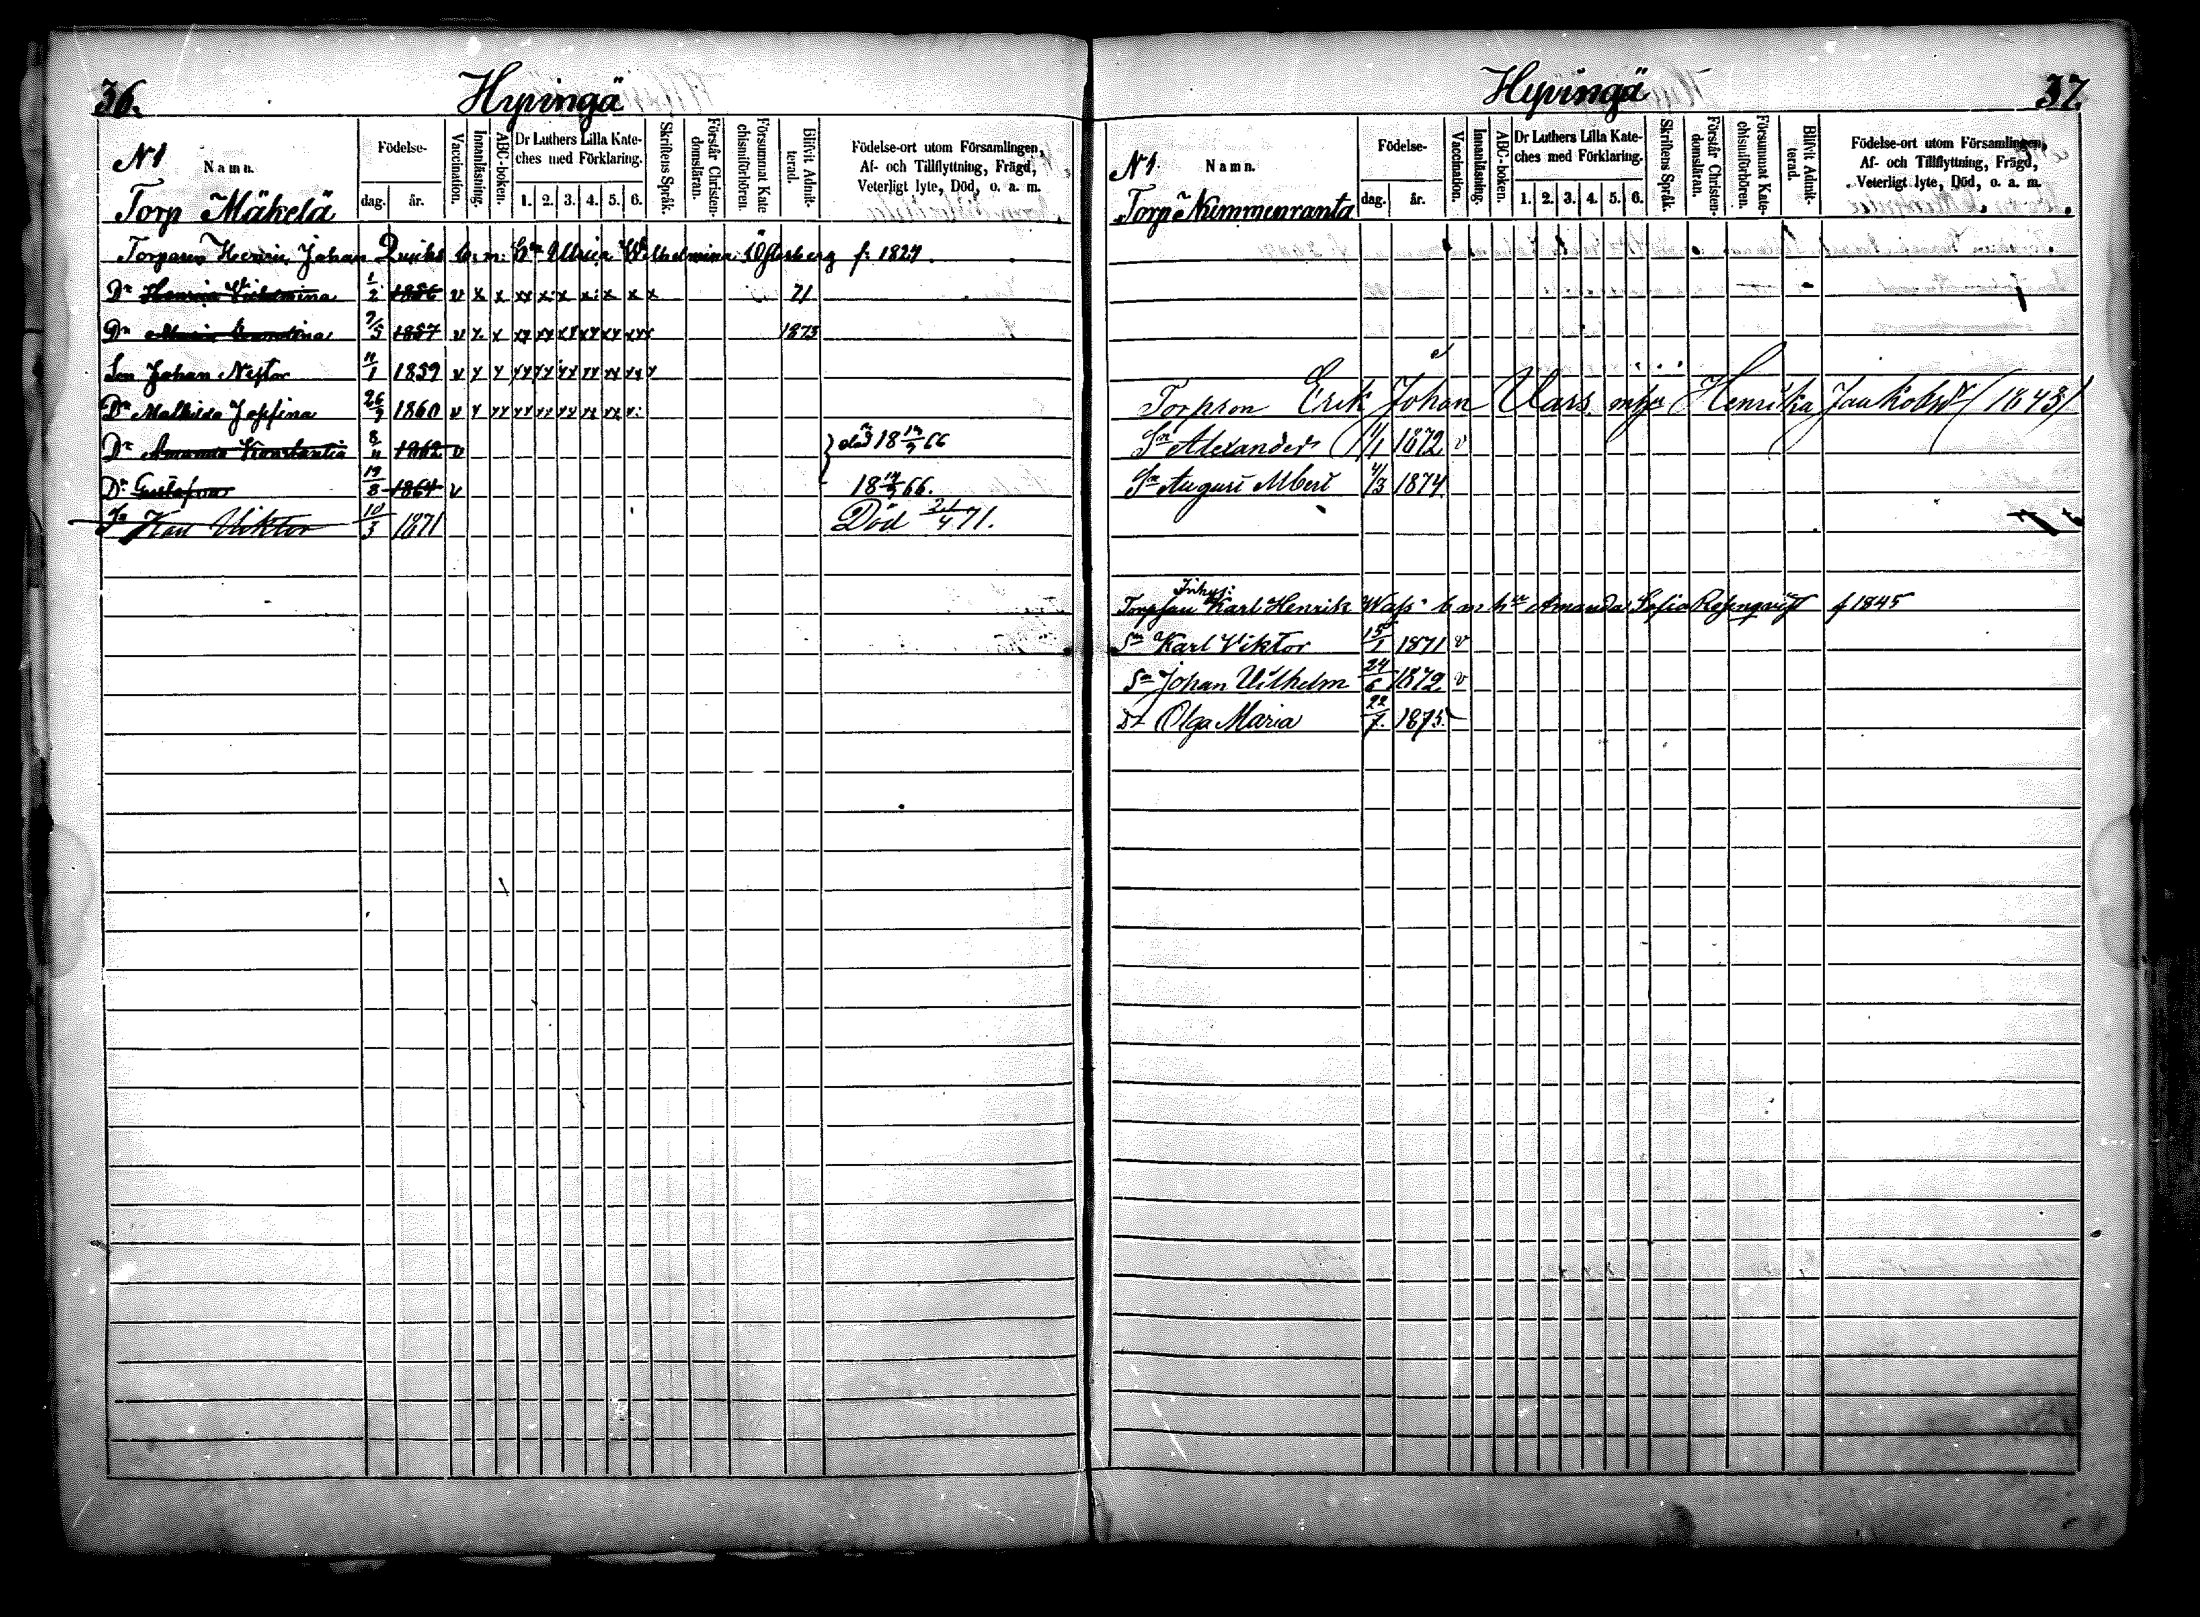 36.
Hyvingä
N 1
Namn.
Födelse-
dag.
år.
Vaccination.
Innanläsning.
ABC-boken.
Dr Luthers Lilla Kate-
ches med Förklaring.
1. 2. 3. 4. 5. 6.
Skriftens Språk.
Förstår Christen-
domsläran.
Försummat Kate
chismiförhören.
Blifvit Admit-
terad.
Födelse-ort utom Församlingen,
Af- och Tillflyttning, Frägd,
Veterligt lyte, Död, o. a. m.
Torp Mäkelä
Torparen Henric Johan b. m. Ulrica Wilhelmina Österberg f. 1827
Dr Henrica Vilhelmina 1/2 1856 v x x xx x x x x x x 71
Dr Maria 1857 v x x xx xx xx xx xx xxx 1873
Son Johan Nestor 11/1 1859 v x x xx xx xx xx xx xx x
Dr Mathilda Josefina 26/9 1860 v x xx xx xx xx xx xx x
Dr Amanda Konstantia 8/11 1862 v död 18 66
Dr Gustafva 19/8 1864 v 18 66.
Sn Karl Viktor 10/3 1871 Död 21/4 71.
37.
Hyvingä
N 1.
Namn.
Födelse-
dag.
år.
Vaccination.
Innanläsning.
ABC-boken.
Dr Luthers Lilla Kate-
ches med Förklaring.
1. 2. 3. 4. 5. 6.
Skriftens Språk.
Förstår Christen-
domsläran.
Försummat Kate-
chismiförhören.
Blifvit Admit-
terad.
Födelse-ort utom Församlingen,
Af- och Tillflyttning, Frägd,
Veterligt lyte, Död, o. a. m.
Torp Nummenranta
Torpson Erik Johan Henrika (1843)
Sn Alexander 1/1 1872 v
Sn August Albert 4/3 1874
Inhys:
Karl Henrik b m hu Amanda Sofia Rosenqvist f 1845
Sn Karl Viktor 15/1 1871 v
Sn Johan Vilhelm 24/6 1872 v
Dr Olga Maria 22/7. 1875.